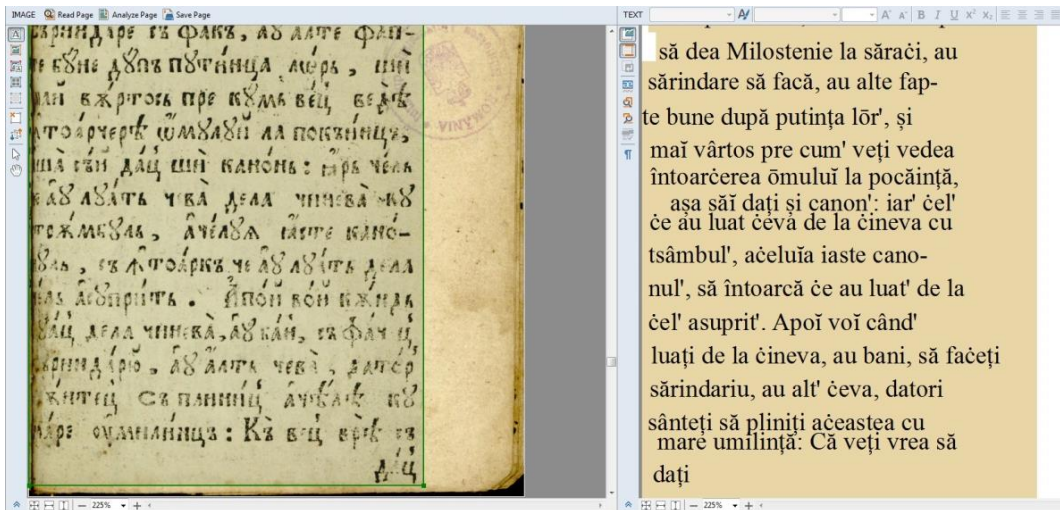 IMAGE Read Page Analyze Page Save Page
съ факъ, аꙋ алте фап-
бꙋне дꙋпъ пꙋтинца лѡрь, ши
вѫртось пре кꙋмь вец ведѣ
ѡмꙋлꙋй ла покъинцъ,
дац ши канонь: ꙗрь чель
аꙋ лꙋать чева дела чинева кꙋ
ачелꙋꙗ ꙗсте кано-
съ ꙟтоаркъ че аꙋ лꙋать дела
асꙋприть. Апой вой кѫндь
дела чинева, аꙋ бани, съ фачец
аꙋ алть чева, датор
съ плиниц ачѣстѣ кꙋ
маре ꙋмилинцъ: Къ вец врѣ съ
дац
225%
TEXT
să dea Milostenie la săraċi, au
sărindare să facă, au alte fap-
te bune după putinţa lōr', şi
maĭ vârtos pre cum' veţi vedea
întoarċerea ōmuluĭ la pocăinţă,
aşa săĭ daţi şi canon': iar' ċel'
ċe au luat ċeva de la ċineva cu
tsâmbul', aċeluĭa iaste cano-
nul', să întoarcă ċe au luat' de la
ċel' asuprit'. Apoĭ voĭ când'
luaţi de la ċineva, au bani, să faċeţi
sărindariu, au alt' ċeva, datori
sânteţi să pliniţi aċeastea cu
mare umilinţă: Că veţi vrea să
daţi
225%